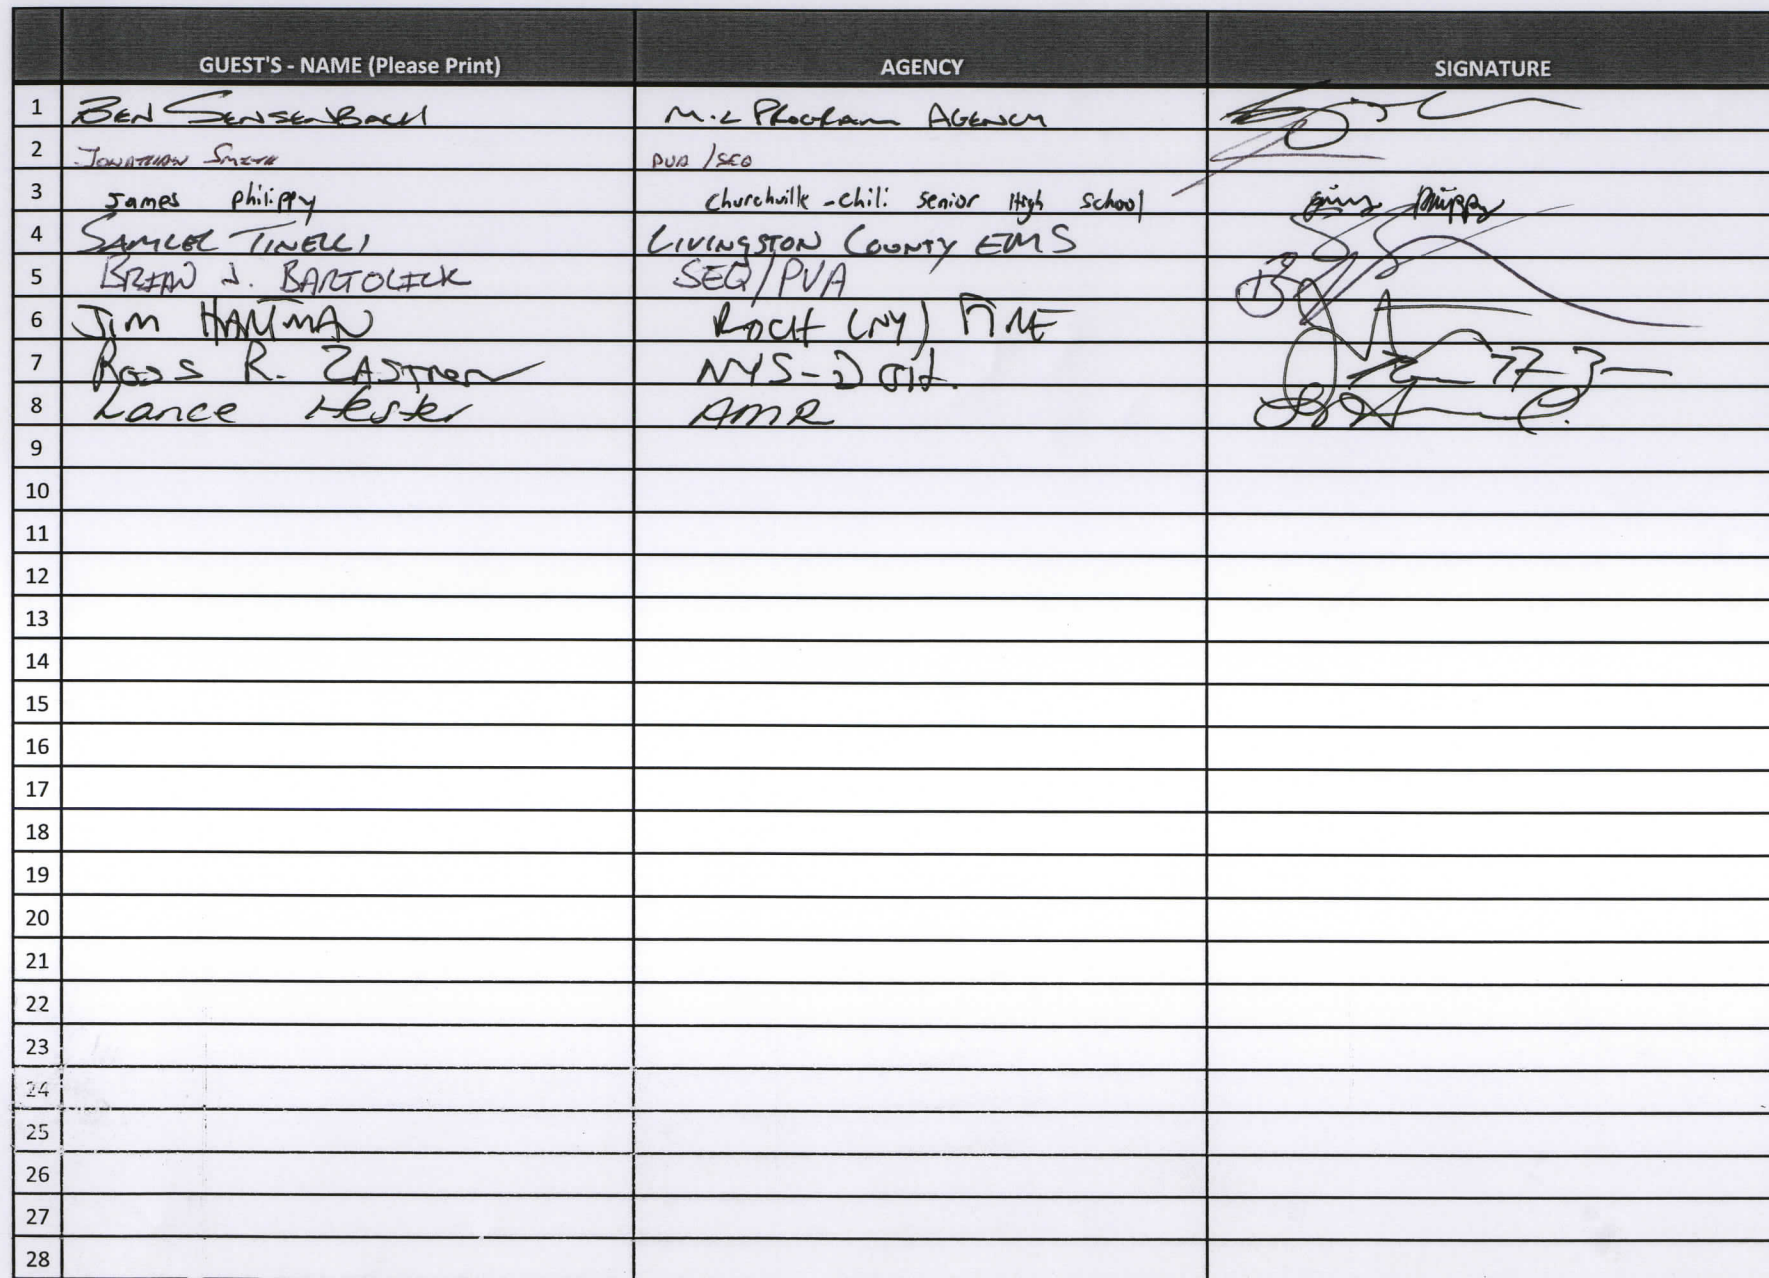 GUEST'S - NAME (Please Print) AGENCY SIGNATURE
1 BEN SENSENBACH M.L PROGRAM AGENCY
2 JONATHAN SMITH PVA / SEQ
3 James Philippy Churchville - Chili Senior High School
4 SAMUEL TINELLI LIVINGSTON COUNTY EMS
5 BRIAN J. BARTOLICK SEQ/PVA
6 JIM ROCH (NY) FIRE
7 ROSS R. ZASTROW
8 Lance Hester AMR
9
10
11
12
13
14
15
16
17
18
19
20
21
22
23
24
25
26
27
28